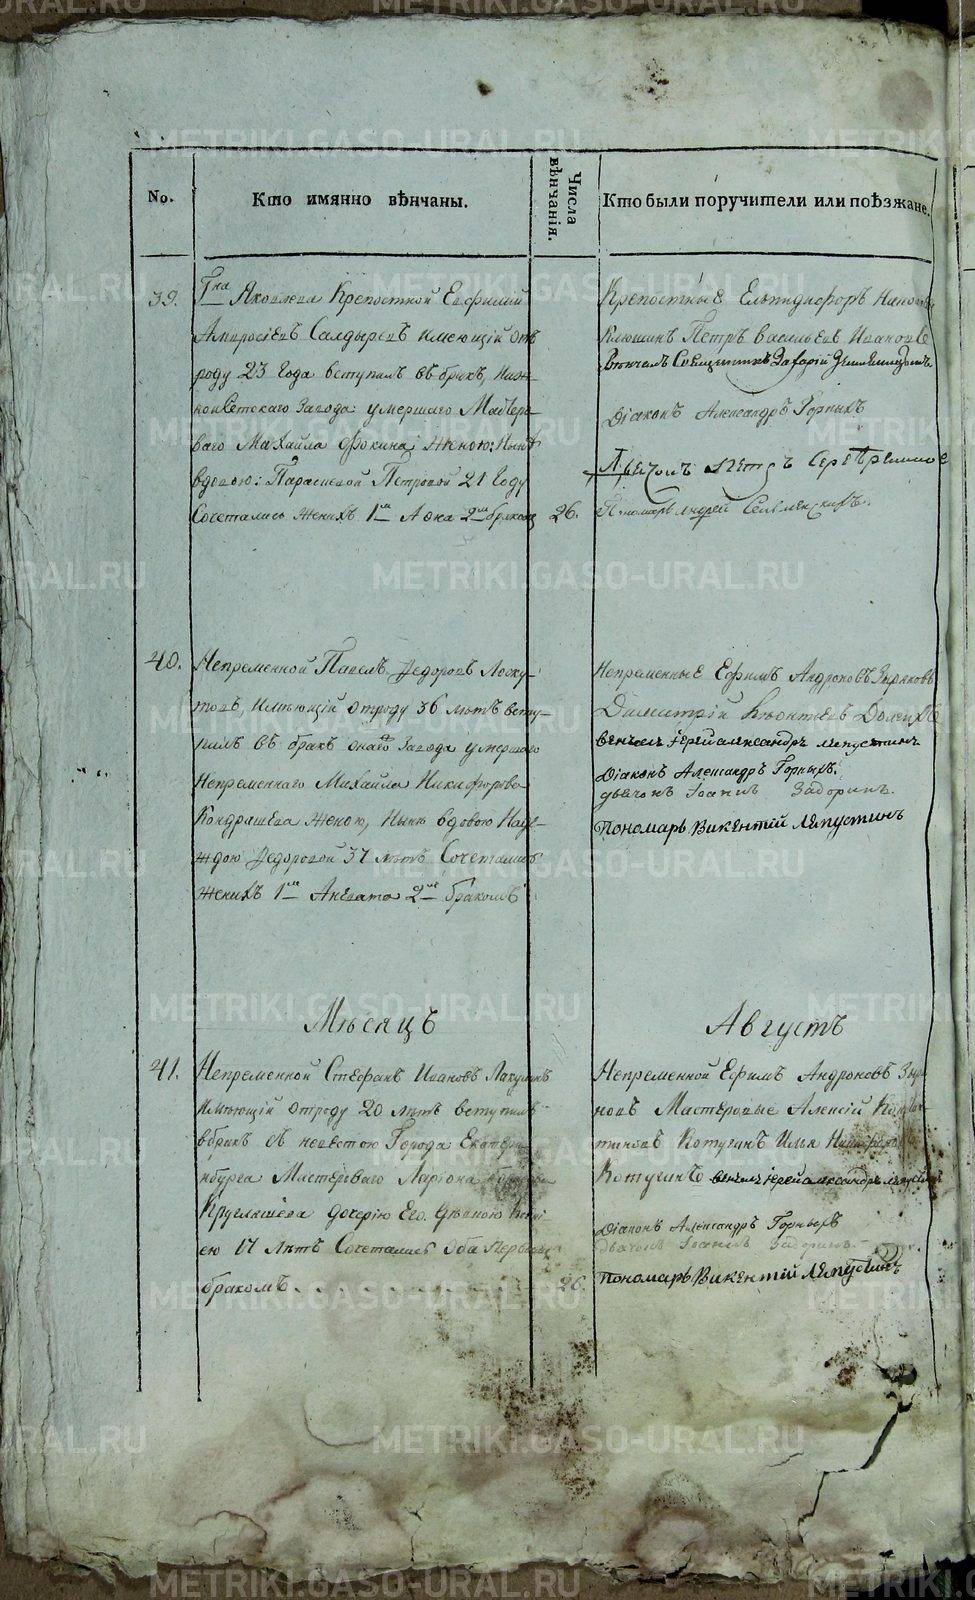 METRIKI.GASO-URAL.RU
No.
Кто имянно вѣнчаны.
Числа вѣнчанія.
Кто были поручители или поѣзжане.
39.
Гна Яковлева Крепостной Евфимій
Амвросіевъ Салдыревъ имеющій отъ
роду 23 Года вступилъ въ бракъ, Ниж-
Завода умершаго Мастеро-
ваго Михаила Фокина Женою: нынѣ
вдовою: Параскевой Петровой 21 Году
Сочетались Женихъ 1мъ А она 2мъ бракомъ
26.
Крепостные Елпидифоръ
Клюшинъ Петръ Васильевъ Ивановъ
Венчалъ Священникъ Захарій
Діаконъ Александръ Горныхъ
Петръ
Пономарь Андрей
40.
Непременной Павелъ Федоровъ Лоску-
товъ, Имѣющій отроду 36 лѣтъ всту-
пилъ въ бракъ онаго Завода умершаго
Непременнаго Михайла Никифорова
Кондрашева Женою, Нынѣ вдовою Наде-
ждою Федоровой 37 лѣтъ Сочетались
Женихъ 1мъ А невеста 2мъ бракомъ
Непременные Ефимъ Андроновъ Зыряновъ
Димитрій Леонтьевъ
венчалъ Іерей александръ Ляпустинъ
Діаконъ Александръ Горныхъ.
дьячокъ Іоаннъ Задоринъ.
Пономарь Викентій Ляпустинъ
Мѣсяцъ
Августъ
41.
Непременной Стефанъ Ивановъ
Имѣющій отроду 20 лѣтъ вступилъ
вбракъ съ невестою Города Екатери-
нбурга Мастероваго Ларіона
Кругляшева дочерію Его. Дѣвкою
ею 17 лѣтъ Сочетались Оба Первымъ
бракомъ
26.
Непременной Ефимъ Андроновъ Зыря-
новъ Мастеровые Алексій
Котугинъ Илья
Котугинъ венчалъ іерей александръ Ляпустинъ
Діаконъ Александръ Горныхъ
дьячокъ Іоаннъ Задоринъ.
Пономарь Викентій Ляпустинъ